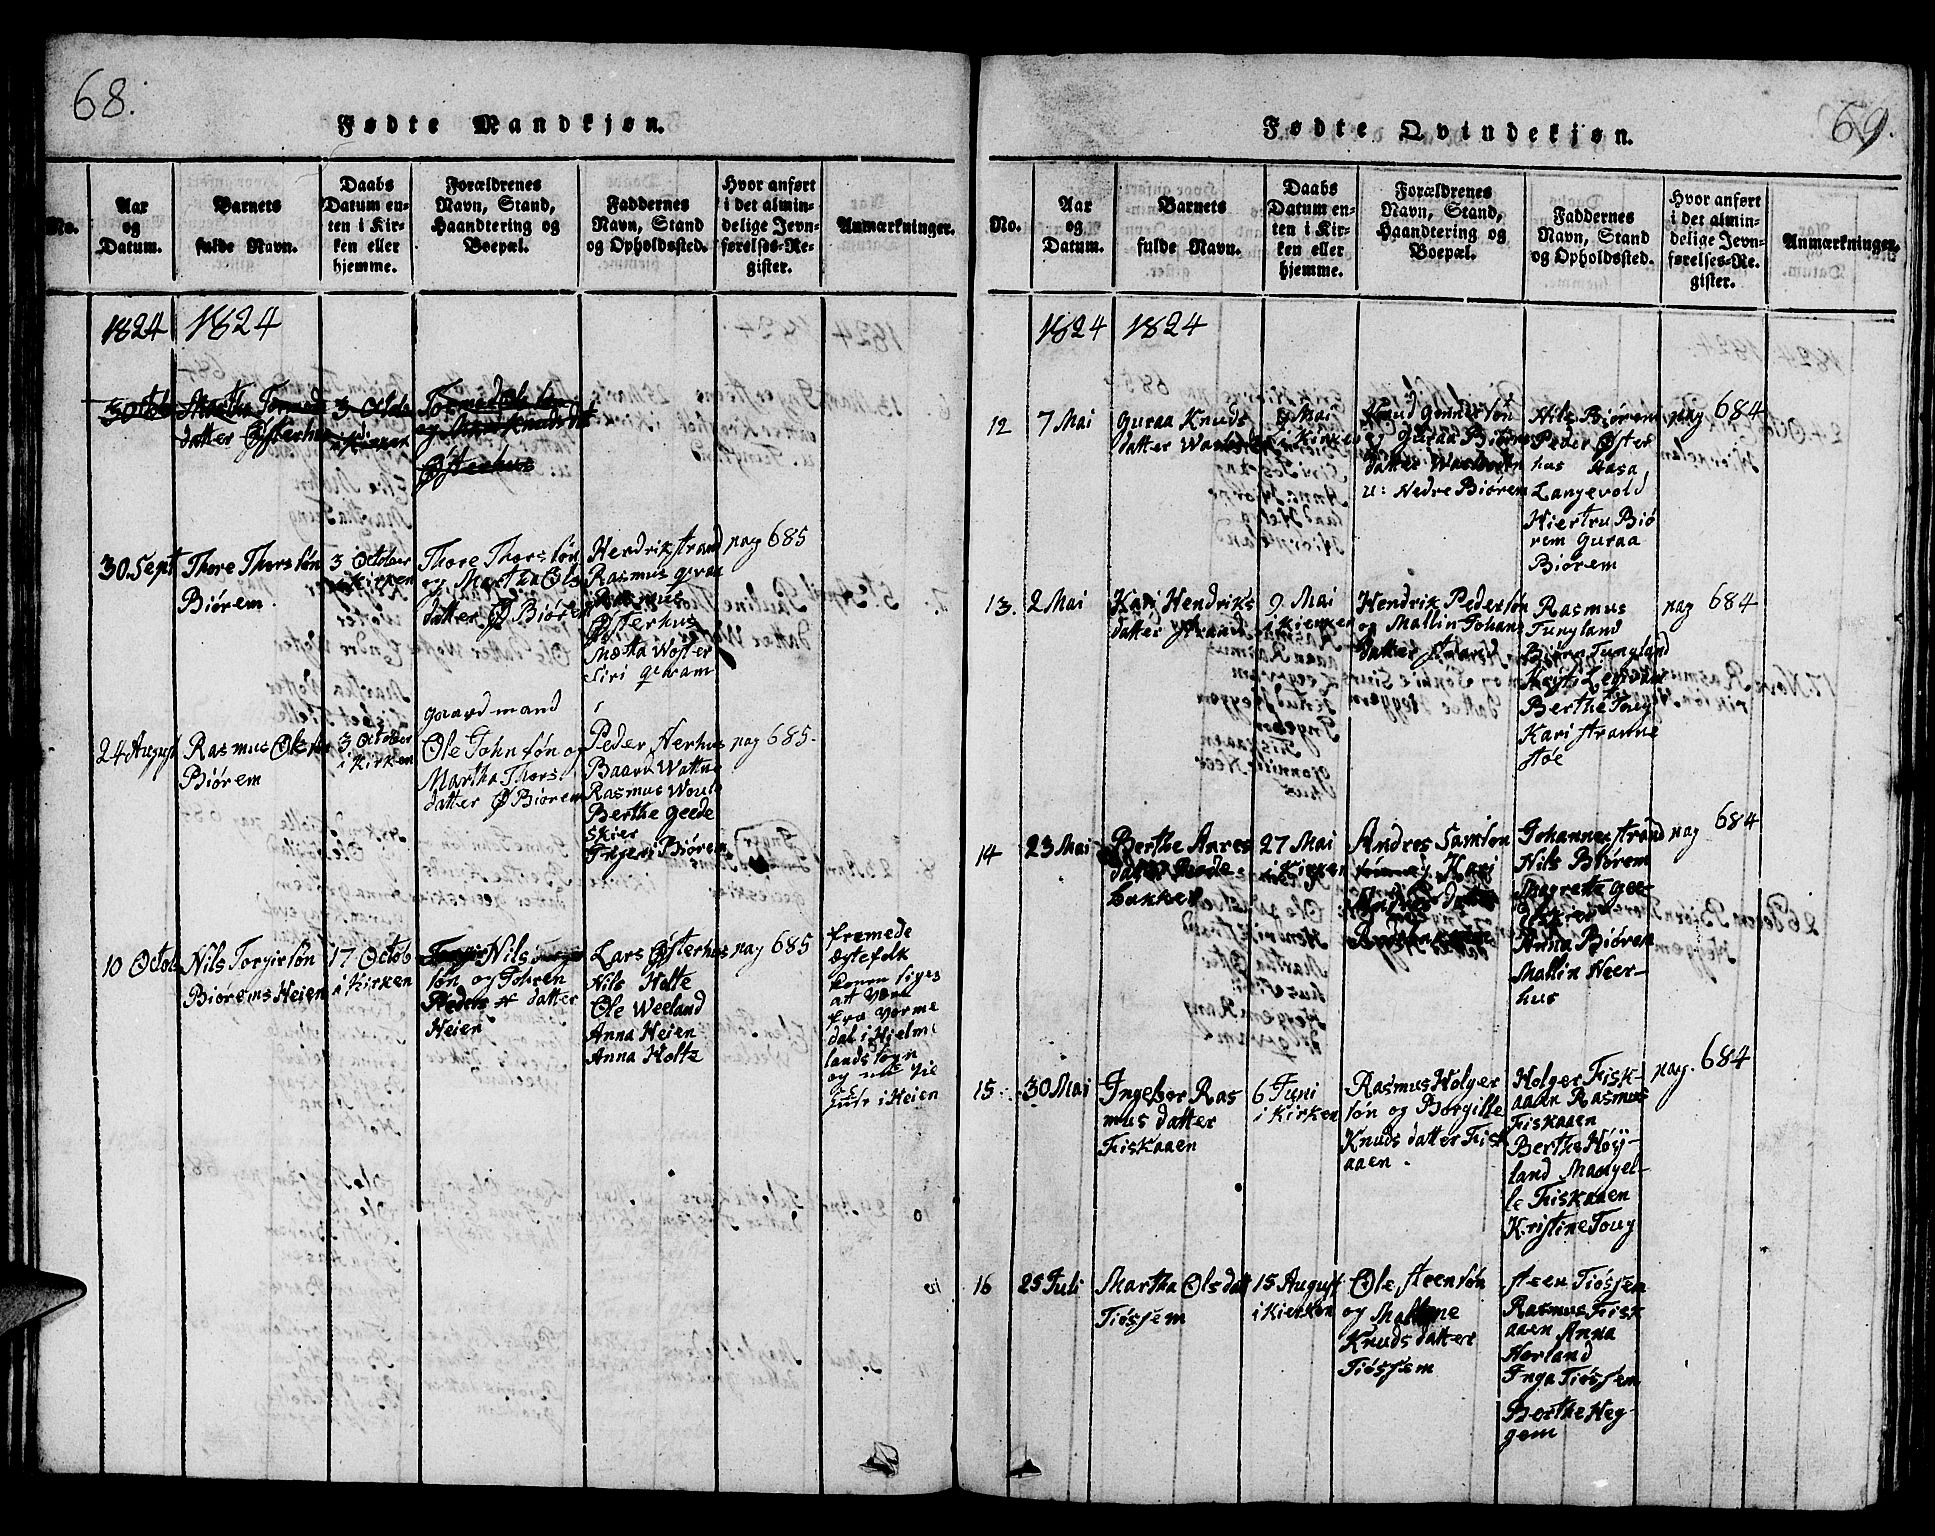 68.
Fødte Mandkjøn.
No.
Aar
og
Datum.
Barnets
fulde Navn.
Daabs
Datum en-
ten i Kir-
ken eller
hjemme.
Forældrenes
Navn, Stand,
Haandtering og
Boepæl.
Faddernes
Navn, Stand
og Opholdssted.
Hvor anført
i det almin-
delige Jevn-
førelses-Re-
gister.
Anmærkninger.
1824
1824
3 Octob
Martha Tormods
datter Østerhus
3 Octob
i Kirken
og Knudsdat
Østerhus
30. Sept
Thore Thorssøn
Biørem.
3 October
i Kirken
Thore Thorssøn
og Martha Ols
datter Ø Biørem
Hendrik Strand
Rasmus
Rasmus
Østerhus
Mætta Woster
Siri
pag 685
24 August
Rasmus Olssøn
Biørem
3 October
i Kirken
gaardmand
Ole Johnsøn og
Martha Thors
datter Ø Biørem
Peder Aerhus
Baard Wattne
Rasmus
Berthe geede
skier
Ingeri Biørem
pag 685.
10 Octob
Nils Torgirsøn
Biørems Heien
17 Octob
i Kirken
Nils Torgir
søn og Tohren
datter
Heien
Lars Østerhus
Nils Holte
Ole Weeland
Anna Heien
Anna Holte
pag 685
fremede
ægtefolk
som siges
at være
fra
dal i Hielme
lands sogn
og nu til
huse i Heien
69.
Fødte Qvindekjøn.
No.
Aar
og
Datum.
Barnets
fulde Navn.
Daabs
Datum en-
ten i Kir-
ken eller
hjemme.
Forældrenes
Navn, Stand,
Haandtering og
Boepæl.
Faddernes
Navn, Stand
og Opholdssted.
Hvor anført
i det almin-
delige Jevn-
førelses-Re-
gister.
Anmærkninger.
1824
1824
12
7 Mai
Guraa Knuds
datter
9 Mai
i Kirken
Knud Gunnersøn
og Guraa Biørns
datter
Nedre Biørem
Nils Biørem
Peder Øster
hus Aasa
Langevold
Hiertru Biø
rem Guraa
Biørem
pag 684
13.
2 Mai
Kari Hendriks
datter Strand
9 Mai
i Kierken
Hendrik Pedersøn
og Mallin Johans
datter Strand
Rasmus
Tungland
Biørn Tungland
Berthe Toug
Kari Stranne
støe
pag 684
14
23 Mai
Berthe Anres
datter Rede-
bakken
27 Mai
i Kirken
Andres Samson
Kari
datter
Johannes Strand
Nils Biørem
Magrette gee-
deskier
Anna Biørem
Mallin Neer-
hus
pag 684
15
30 Mai
Ingebor Ras
mus datter
Fiskaaen
6 Juni
i Kirken
Rasmus Holger
søn og Borgille
Knuds datter Fisk
aaen.
Holger Fisk-
aaen Rasmus
Fiskaaen
Berthe Høy-
land Mangel-
le Fiskaaen
Kristine Toug
pag. 684
16
25 Juli
Martha Olsdatt
Tiøssem
15 August
i Kierken
Ole Steensøn
og Mallene
Knuds datter
Tiøssem
Steen Tiøssem
Rasmus Fisk
aaen Anna
Norland
Inga Tiøssem
Berthe Heg-
gem